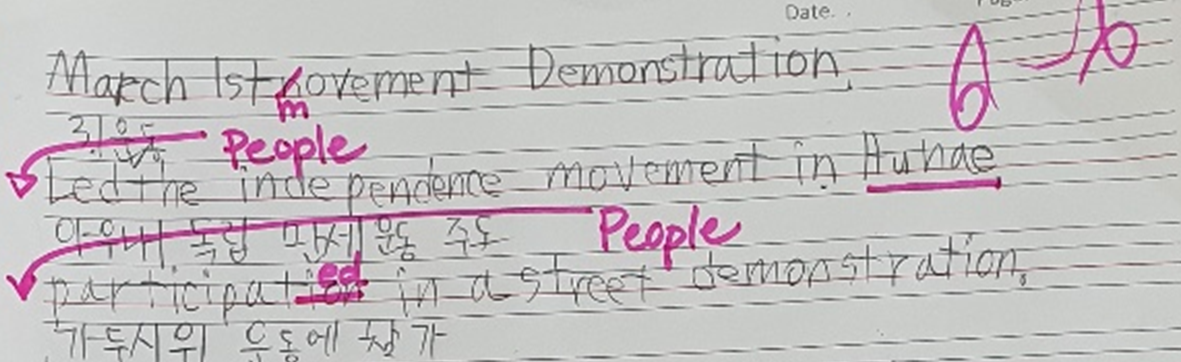 Date. .
March 1st movement Demonstration.
m
3.1운동
People
Led the independence movement in Auhae
아우내 독립 만세 운동 주도
People
participated in a street demonstration.
가두시위 운동에 참가